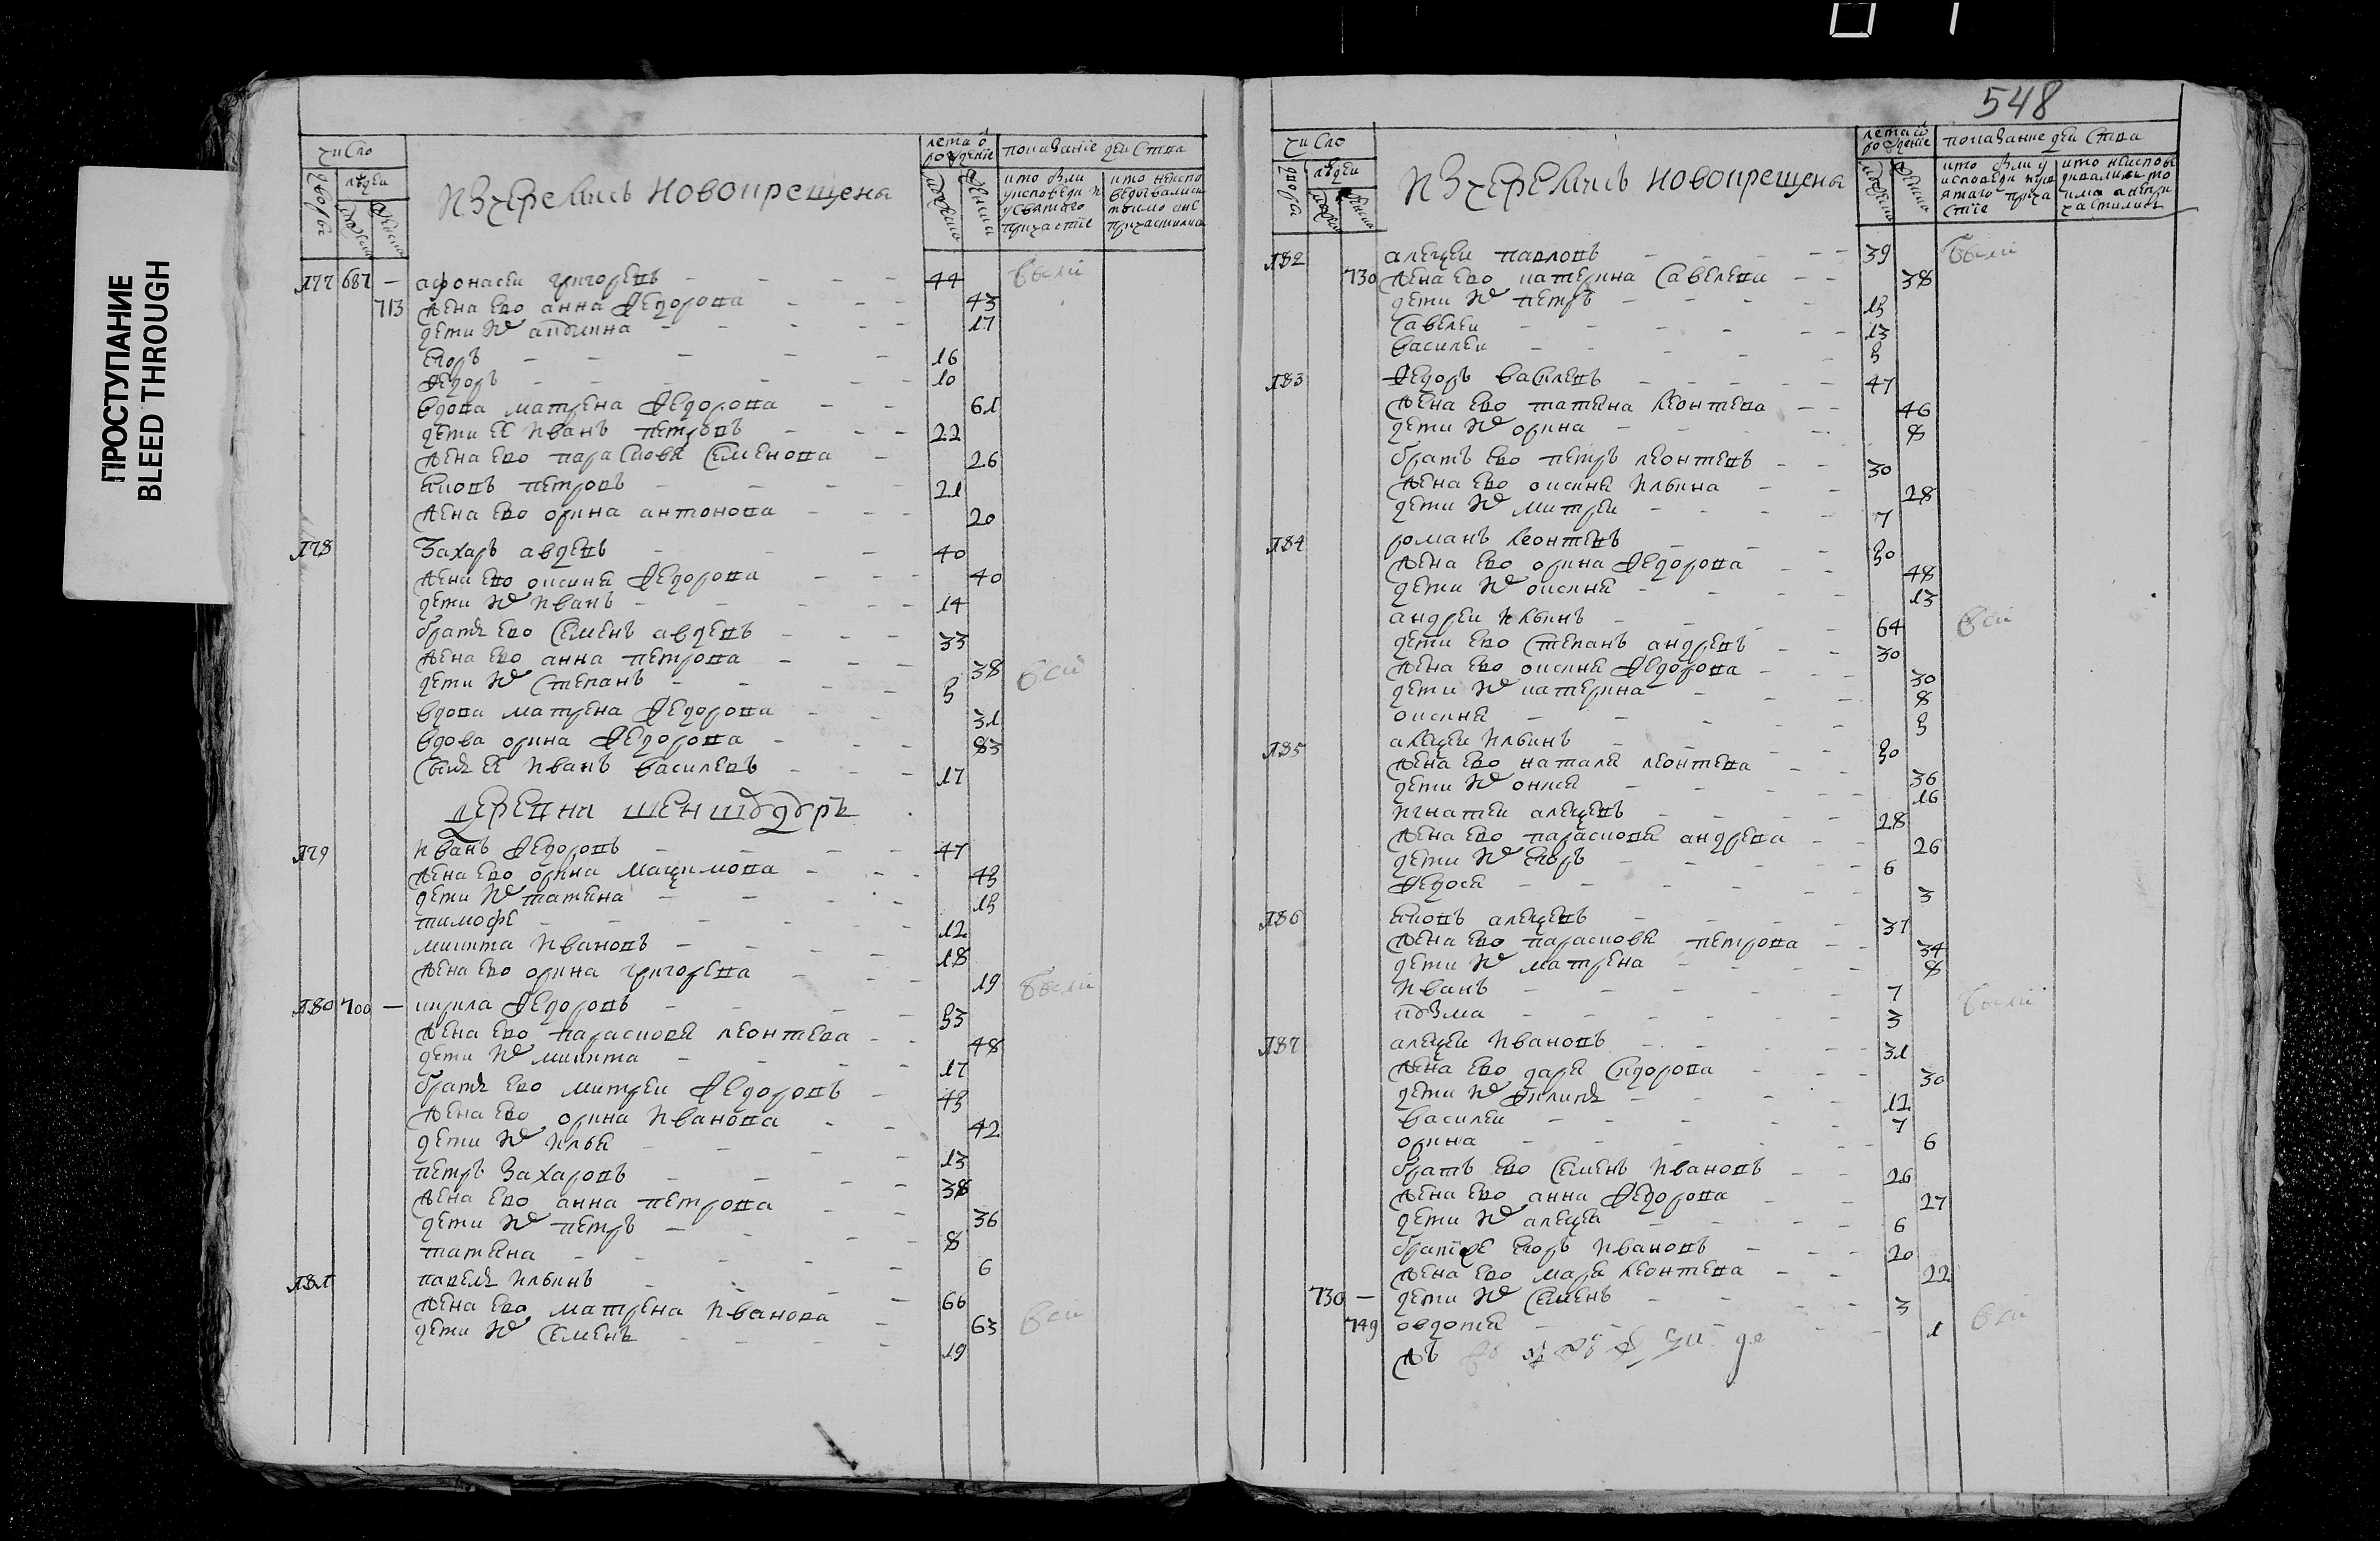 ПРОСТУПАНИЕ
BLEED THROUGH
число
двора
людей
лета ѿ рождение
показание действа
ис черемись новокрещена
кто были у исповеди и у святого причастїе
177 687 — афонасеи григоревъ 44 были
713 жена ево анна федорова 43
дети их 17
егоръ 16
федоръ 10
вдова матрена федорова 61
дети ее иванъ петровъ 22
жена ево парасковя семенова 26
яковъ петровъ 21
жена ево орина антонова 20
178 захаръ авдевъ 40
жена ево оксиня федорова 40
дети их иванъ 14
братъ ево семенъ авдевъ 33
жена ево анна петрова 38
дети их степанъ 5
вси
вдова матрена федорова 31
вдова орина федорова 83
сынъ ее иванъ василевъ 17
деревна
179 иванъ федоровъ 47
жена ево орина макцимова 45
дети их татяна 15
тимофе 12
микита ивановъ 18
жена ево орина григорева 19
были
180 700 — кирила федоровъ 53
жена ево парасковя леонтева 48
дети их микита 17
братъ ево митреи федоровъ 45
жена ево орина иванова 42
дети их илья 13
петръ захаровъ 38
жена ево анна петрова 36
дети их петръ 8
татяна 6
181 павелъ ильинъ 66
жена ево матрена иванова 63
дети их семенъ 19
вси
548
число
двора
людей
лета ѿ рождение
показание действа
ис черемись новокрещена
182 алекцеи павловъ 39 были
730 жена ево катерина савелева 38
дети их петръ 15
савелеи 13
василеи 5
183 федоръ василевъ 47
жена ево татяна леонтева 46
дети их орина 8
братъ ево петръ леонтевъ 30
жена ево оксиня ильина 28
дети их митреи 7
184 романъ леонтевъ 50
жена ево орина федорова 48
дети их оксиня 13
андреи ильинъ 64
вси
дети ево степанъ андревъ 30
жена ево оксиня федорова 30
дети их катерина 8
оксиня 5
185 алекцеи ильинъ 50
жена ево наталя леонтева 36
дети их 16
игнатеи алекцевъ 28
жена ево парасковя андрева 26
дети их егоръ 6
федося 3
186 яковъ алекцевъ 37
жена ево парасковя петрова 34
дети их матрена 8
иванъ 7
кузма 3
были
187 алекцеи ивановъ 31
жена ево даря сидорова 30
дети их филипъ 12
василеи 7
орина 6
братъ ево семенъ ивановъ 26
жена ево анна федорова 27
дети их алекцеи 6
егоръ ивановъ 20
жена ево маря леонтева 22
730 — дети их семенъ 3
749 овдотя 1
вси